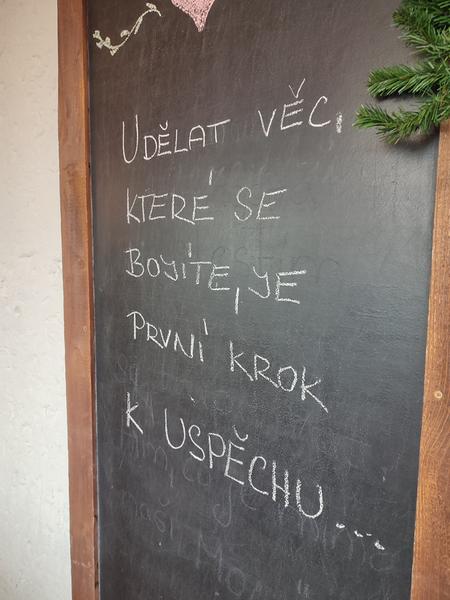 UDĚLAT VĚC,
KTERÉ SE
BOJÍTE, JE
PRVNÍ KROK
K ÚSPĚCHU...